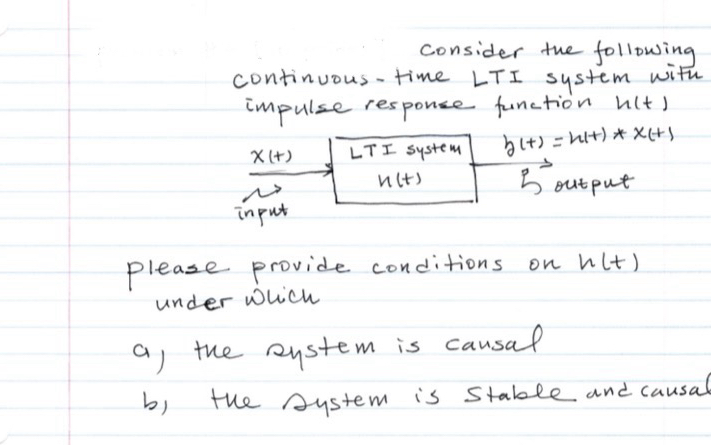 Consider the following
continuous-time LTI system with
impulse response function h(t)
x(t)
LTI system
h(t)
y(t) = h(t) * x(t)
input
output
please provide conditions on h(t)
under which
a, the system is causal
b, the system is stable and causal